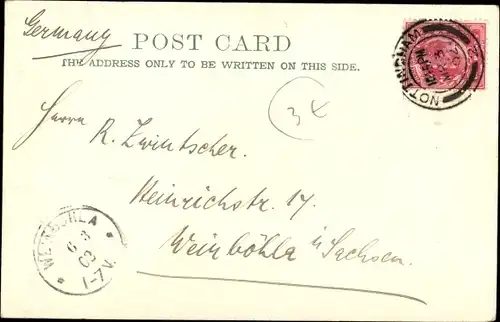 Germany
POST CARD
THE ADDRESS ONLY TO BE WRITTEN ON THIS SIDE.
NOTTINGHAM
3 €
Herrn R. Zwintscher.
Heinrichstr. 17.
Weinböhla i/Sachsen.
WEINBÖHLA
6 3
02
1-7V.